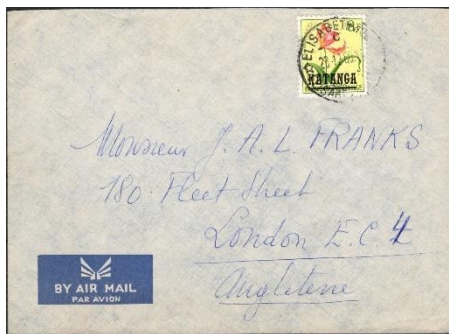 ELISABETHVILLE
C
KATANGA
Monsieur J. A. L. FRANKS
180. Fleet Street
London E.C 4
Angleterre
BY AIR MAIL
PAR AVION